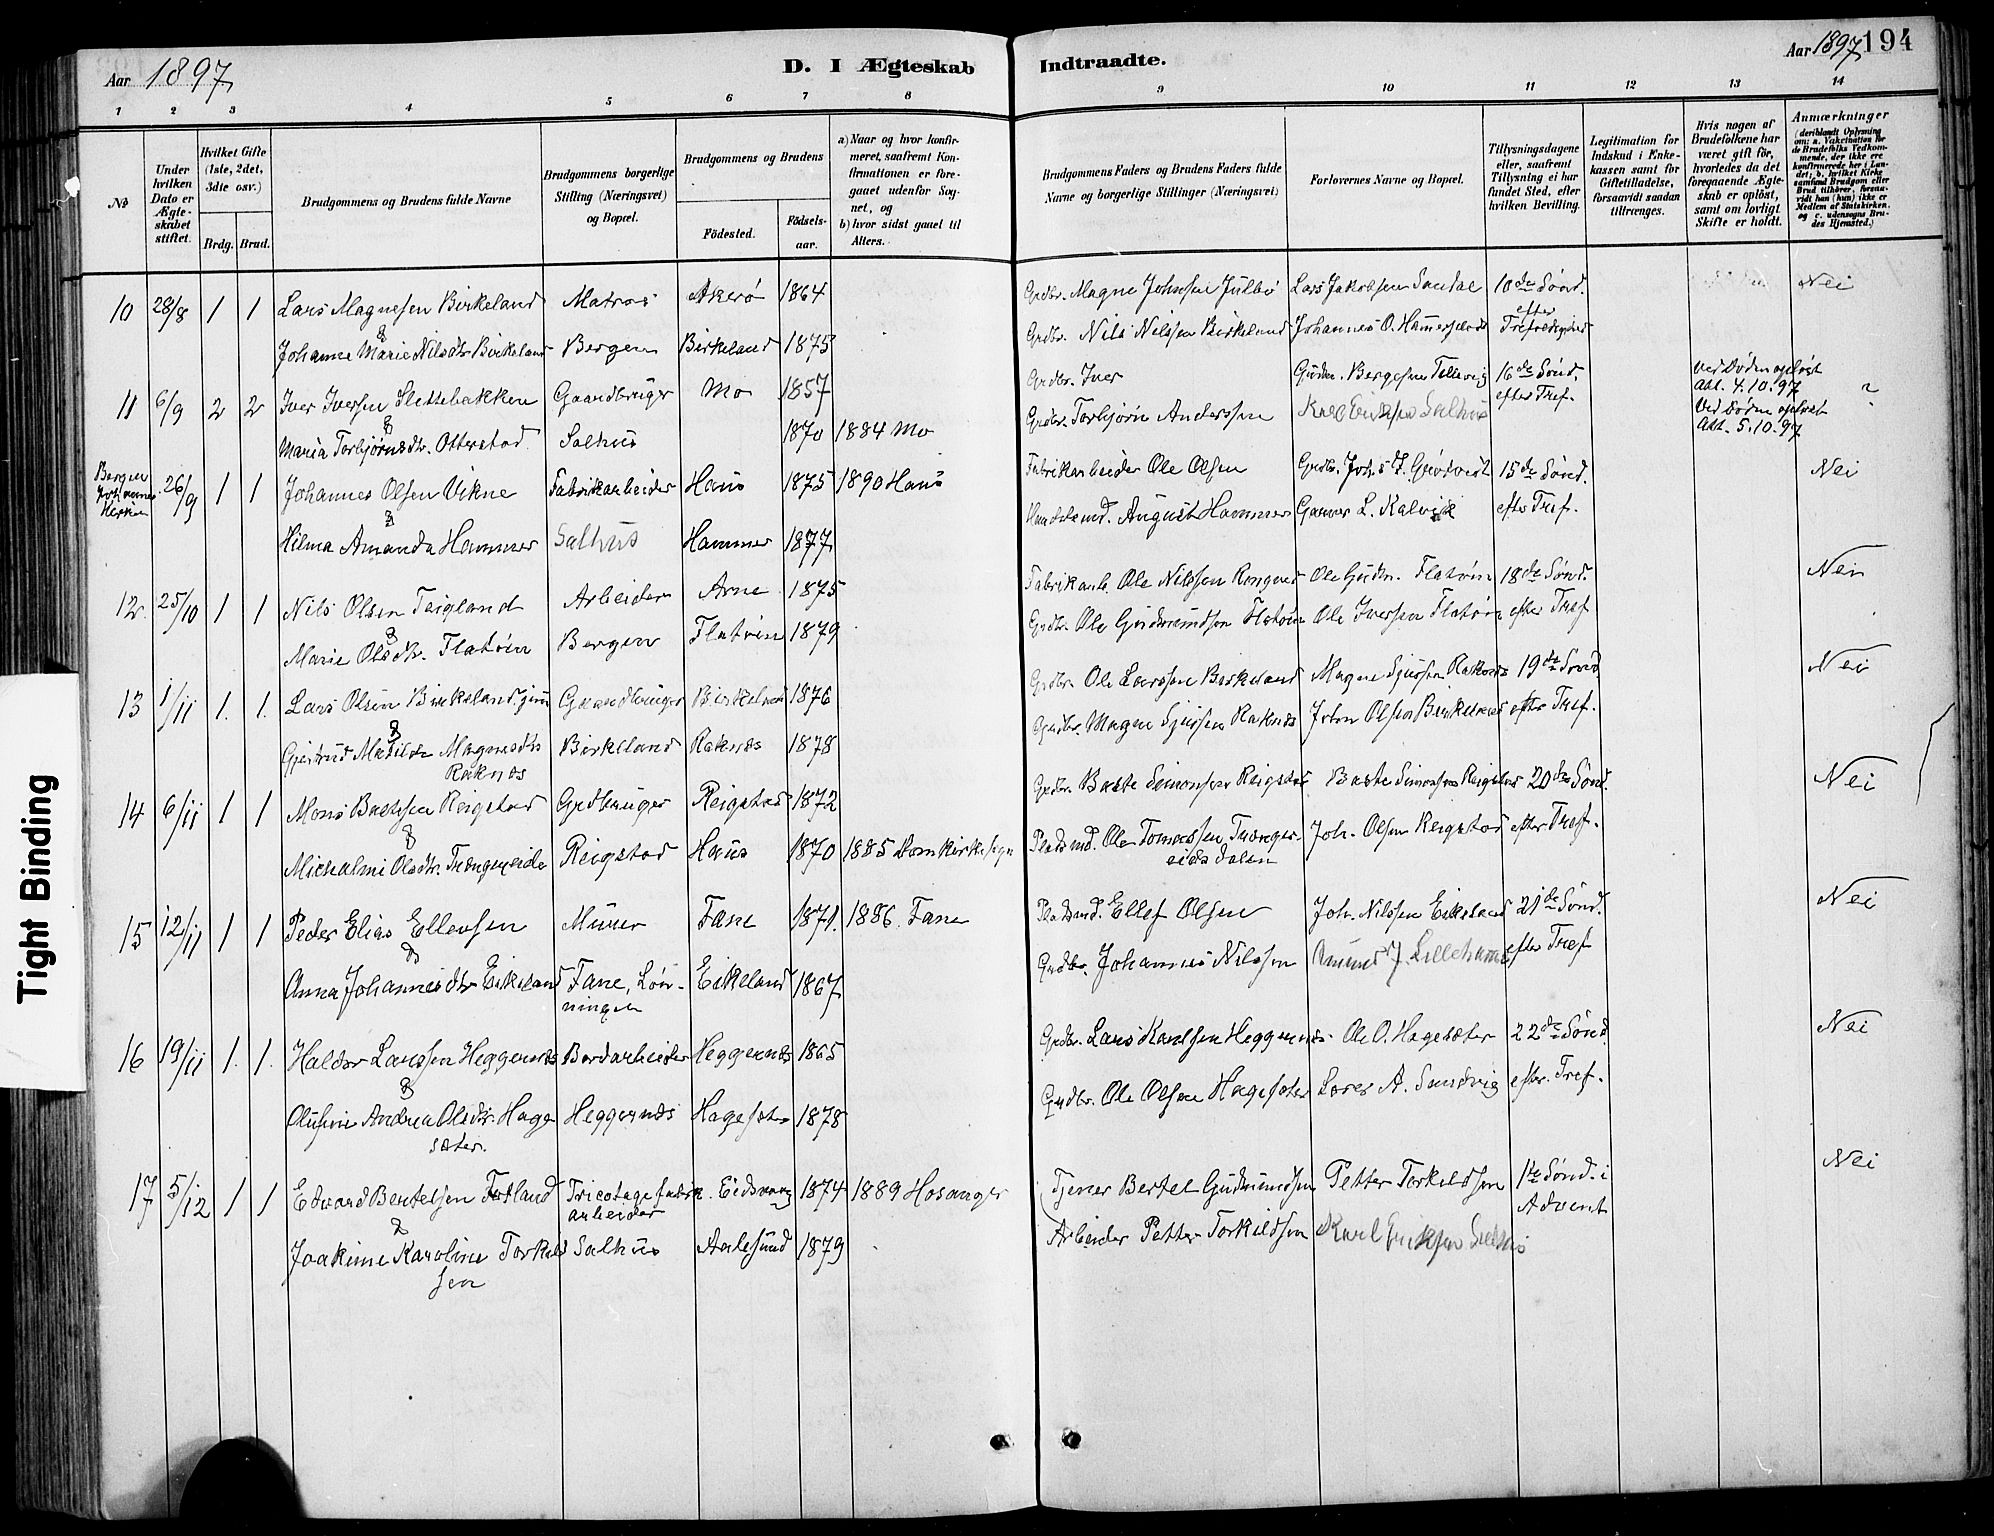 Aar 1897
D. I Ægteskab
Indtraadte.
Aar 1897
194
1 2 3 4 5 6 7 8
9 10 11 12 13 14
No
Under hvilken Dato er Ægteskabet stiftet.
Hvilket Gifte (1ste, 2det, 3die osv.)
Brdg. Brud.
Brudgommens og Brudens fulde Navne
Brudgommens borgerlige Stilling (Næringsvei) og Bopæl.
Brudgommens og Brudens
Födested.
Födsels-aar.
a) Naar og hvor konfirmeret, saafremt Konfirmationen er foregaaet udenfor Sognet, og
b) hvor sidst gaaet til Alters.
Brudgommens Faders og Brudens Faders fulde Navne og borgerlige Stillinger (Næringsvei)
Forlovernes Navne og Bopæl.
Tillysningsdagene eller, saafremt Tillysning ei har fundet Sted, efter hvilken Bevilling.
Legitimation for Indskud i Enkekassen samt for Giftetilladelse, forsaavidt saadan tiltrænges.
Hvis nogen af Brudefolkene har været gift för, hvorledes da det foregaaende Ægteskab er oplöst, samt om lovligt Skifte er holdt.
Anmærkninger
(deriblandt Oplysning om: a. Vakcination for de Brudefolks Vedkommende, der ikke ere konfirmerede her i Landet; b. hvilket Kirkesamfund Brudgom eller Brud tilhörer, forsaavidt han (hun) ikke er Medlem af Statskirken, og c. udensogns Brudes Hjemsted.)
10 28/8 1 1 Lars Magnesen Birkeland Matros Akerø 1864 Grdbr. Magne Johnsen Julbø Lars Jakobsen Sandal 10de Sønd. Nei
& Johanne Marie Nilsdtr. Birkeland Bergen Birkeland 1875 Grdbr. Nils Nilsen Birkeland Johannes O. efter
11 6/9 2 2 Iver Iversen Slettebakken Gaardbruger Mo 1857 Grdbr. Iver Bergesen Tellevig 16de Sønd. ved Døden opløst Att. 4.10.97
& Maria Torbjørnsdtr. Otterstad Salhus 1870 1884 Mo Grdbr. Torbjørn Anderssen Karl Eriksen Salhus efter Tref. Ved Døden opløst Att. 5.10.97
Bergen Johannes Kirken 26/9 1 1 Johannes Olsen Vikne Fabrikarbeider Haus 1875 1890 Haus Fabrikarbeider Ole Olsen Grdbr. Johs J. 15de Sønd. Nei
& Hilma Amanda Hammer Salhus Hammer 1877 August Hammer L. Kalvik efter Tref.
12 25/10 1 1 Nils Olsen Teigland Arbeider Arne 1875 Fabrikarb. Ole Nilssen Ole Gudm. Flatøin 18de Sønd. Nei
& Marie Olsdtr. Fladøin Bergen Flatøin 1879 Grdbr. Ole Gudmundsen Flatøin Ole Iversen Flatøin efter Tref
13 1/11 1. 1. Lars Olsen Birkeland jun Gaardbruger Birkeland 1876 Grdbr. Ole Larssen Birkeland Magne Sjursen Raknes 19de Sønd Nei
& Gjertrud Matilde Magnesdtr. Birkeland Raknes 1878 Grdbr. Magne Sjursen Raknes John Olsen Birkeland efter Tref.
Raknes
14 6/11 1 1 Mons Bastesen Reigstad Grdbruger Reigstad 1872 Grdbr. Baste Simonsen Reigstad Baste Simonsen Reigstad 20de Sønd. Nei
& Michalmi Olsdtr. Trengereide Reigstad Haus 1870 1885 Domkirkesogn Pladsmd. Ole Tomassen Trenger- Joh. Olsen Reigstad efter Tref.
eidsdalen
15 12/11 1 1 Peder Elias Ellevsen Murer Fane 1871. 1886. Fane Pladsmd. Ellef Olsen Joh. Nilssen Eikeland 21de Sønd. Nei
& Anna Johannesdtr. Eikeland Fane, Løn- Eikeland 1867 Grdbr. Johannes Nilssen J. Lillehammer efter Tref
ningen
16 19/11 1. 1. Haldor Larssen Heggernes Bordarbeider Heggernes 1865 Grdbr. Lars Knutsen Heggernes Ole O. Hagesæter 22de Sønd Nei
& Olufine Andrea Olsdtr. Hage- Heggernes Hagesæter 1878 Grdbr. Ole Olsen Hagesæter A. Sandvig efter Tref.
sæter.
17 5/12 1 1 Edvard Bertelsen Fotland Tricotagefabrik. Eidsvaag 1874 1889 Hosanger Tjener Bertel Gudmundsen Petter Torkildsen 1te Sønd. i Nei
arbeider
& Joakime Karoline Torkild- Salhus Aalesund 1879 Arbeider Petter Torkildsen Karl Eriksen Salhus Advent
sen
Tight Binding